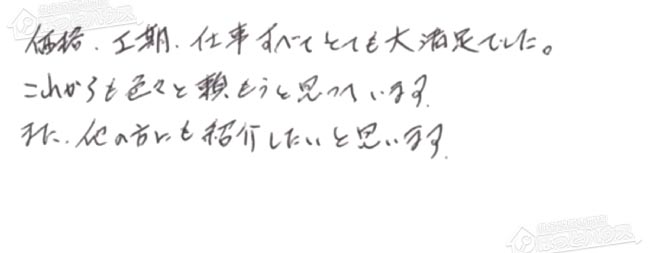 価格、工期、仕事すべてとても大満足でした。
これからも色々と頼もうと思っています。
また、他の方にも紹介したいと思います。